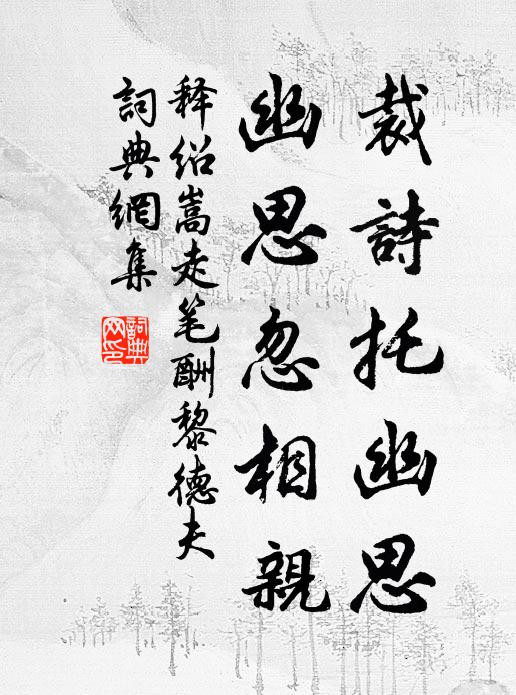 裁詩托幽思
幽思忽相親
释绍嵩走笔酬黎德夫
詞典網集
詞典網印